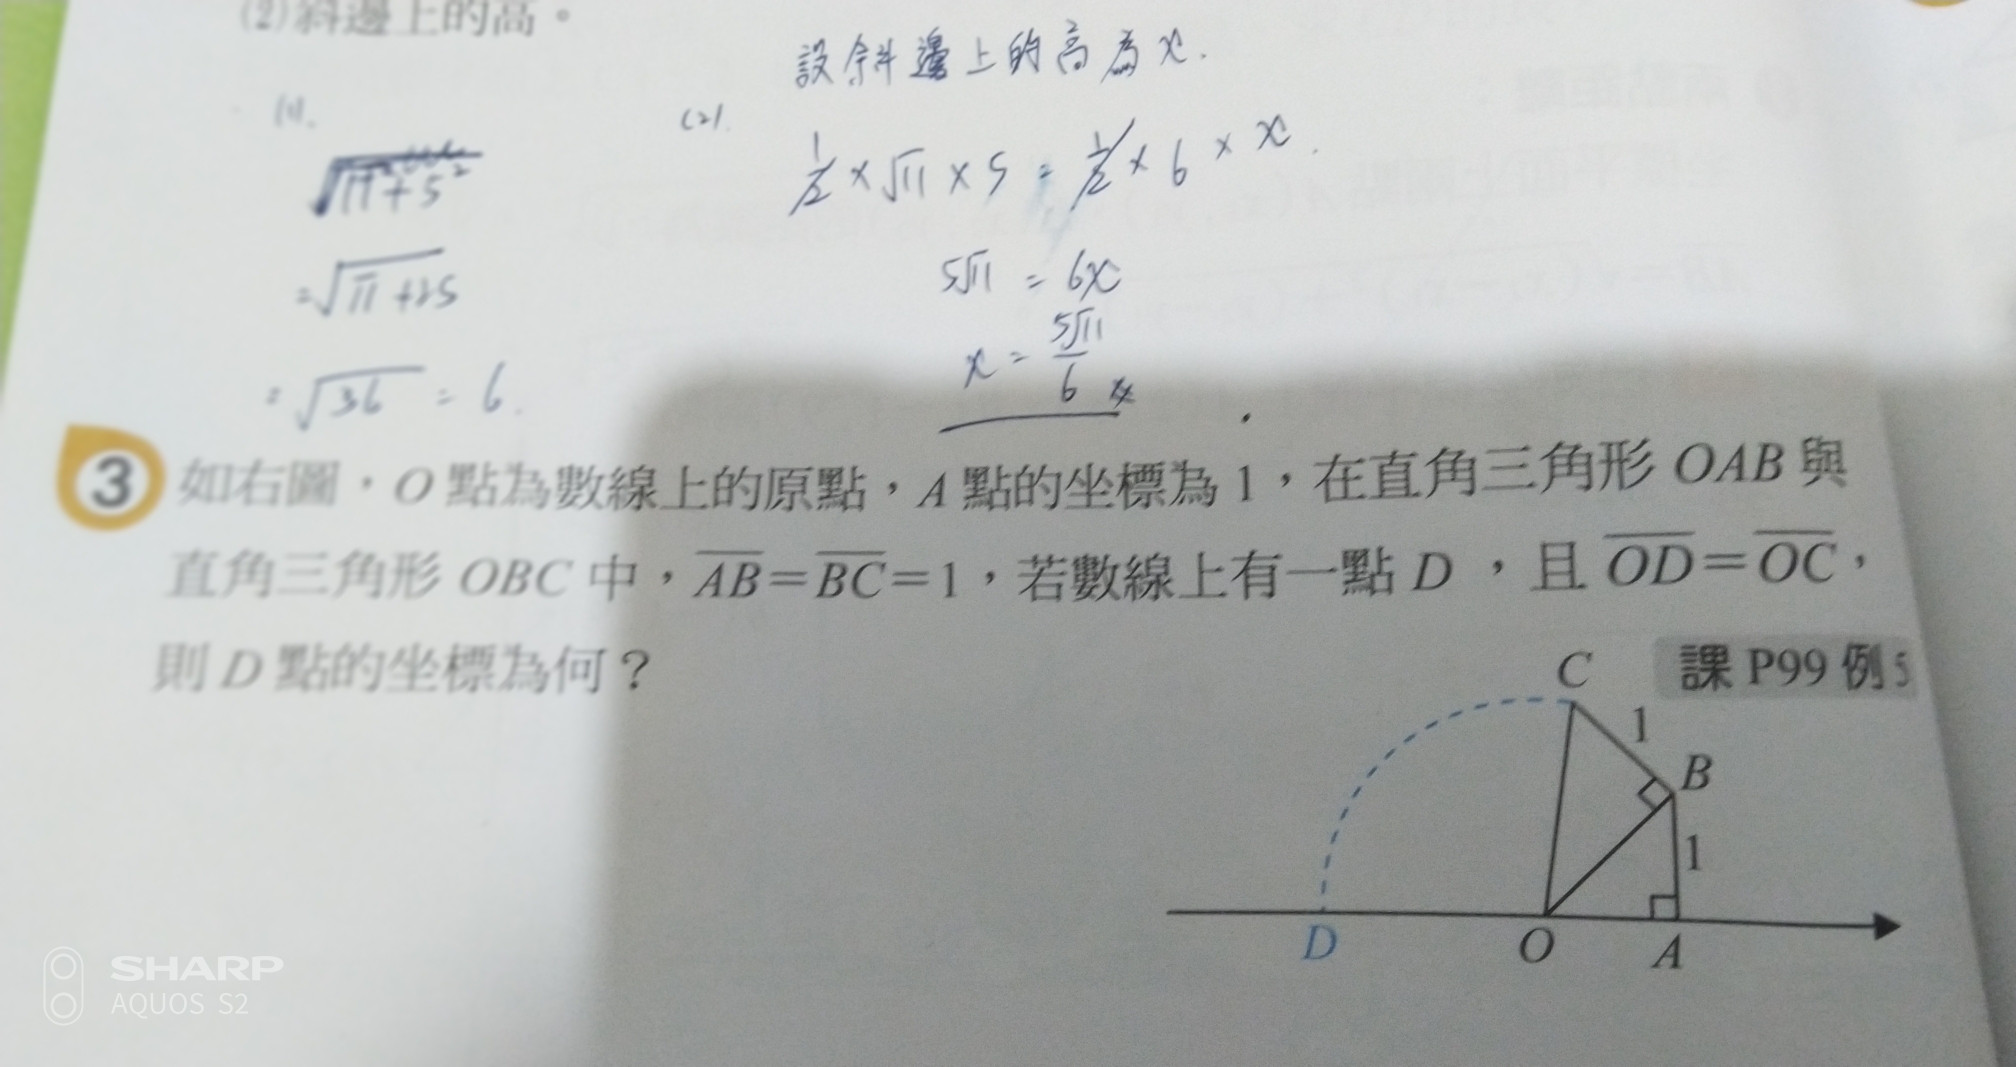 (2)斜邊上的高。
設斜邊上的高為x.
(1).
(2).
√11+5²
½×√11×5=½×6×x.
=√11+25
5√11=6x
x=5√11/6
=√36=6.
3 如右圖，O點為數線上的原點，A點的坐標為1，在直角三角形OAB與
直角三角形OBC中，AB=BC=1，若數線上有一點D，且OD=OC，
則D點的坐標為何？
課P99例5
C
1
B
1
D
O
A
SHARP
AQUOS S2